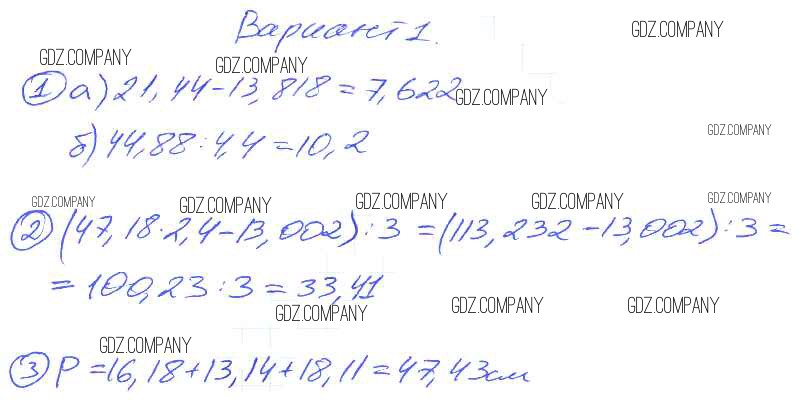 Вариант 1.
GDZ.COMPANY
GDZ.COMPANY
GDZ.COMPANY
① а) 21,44-13,818=7,622
GDZ.COMPANY
б) 44,88:4,4=10,2
GDZ.COMPANY
GDZ.COMPANY
GDZ.COMPANY
GDZ.COMPANY
GDZ.COMPANY
GDZ.COMPANY
② (47,18·2,4-13,002):3=(113,232-13,002):3=
=100,23:3=33,41
GDZ.COMPANY
GDZ.COMPANY
GDZ.COMPANY
GDZ.COMPANY
③ P=16,18+13,14+18,11=47,43см